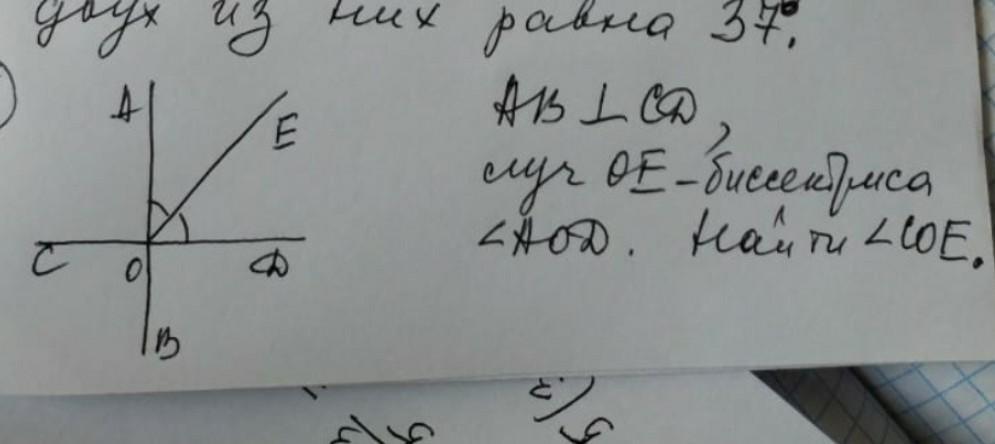 двух из них равна 37°.
A
E
C
O
D
B
AB ⊥ CD,
луч OE - биссектриса
∠AOD. Найти ∠COE.